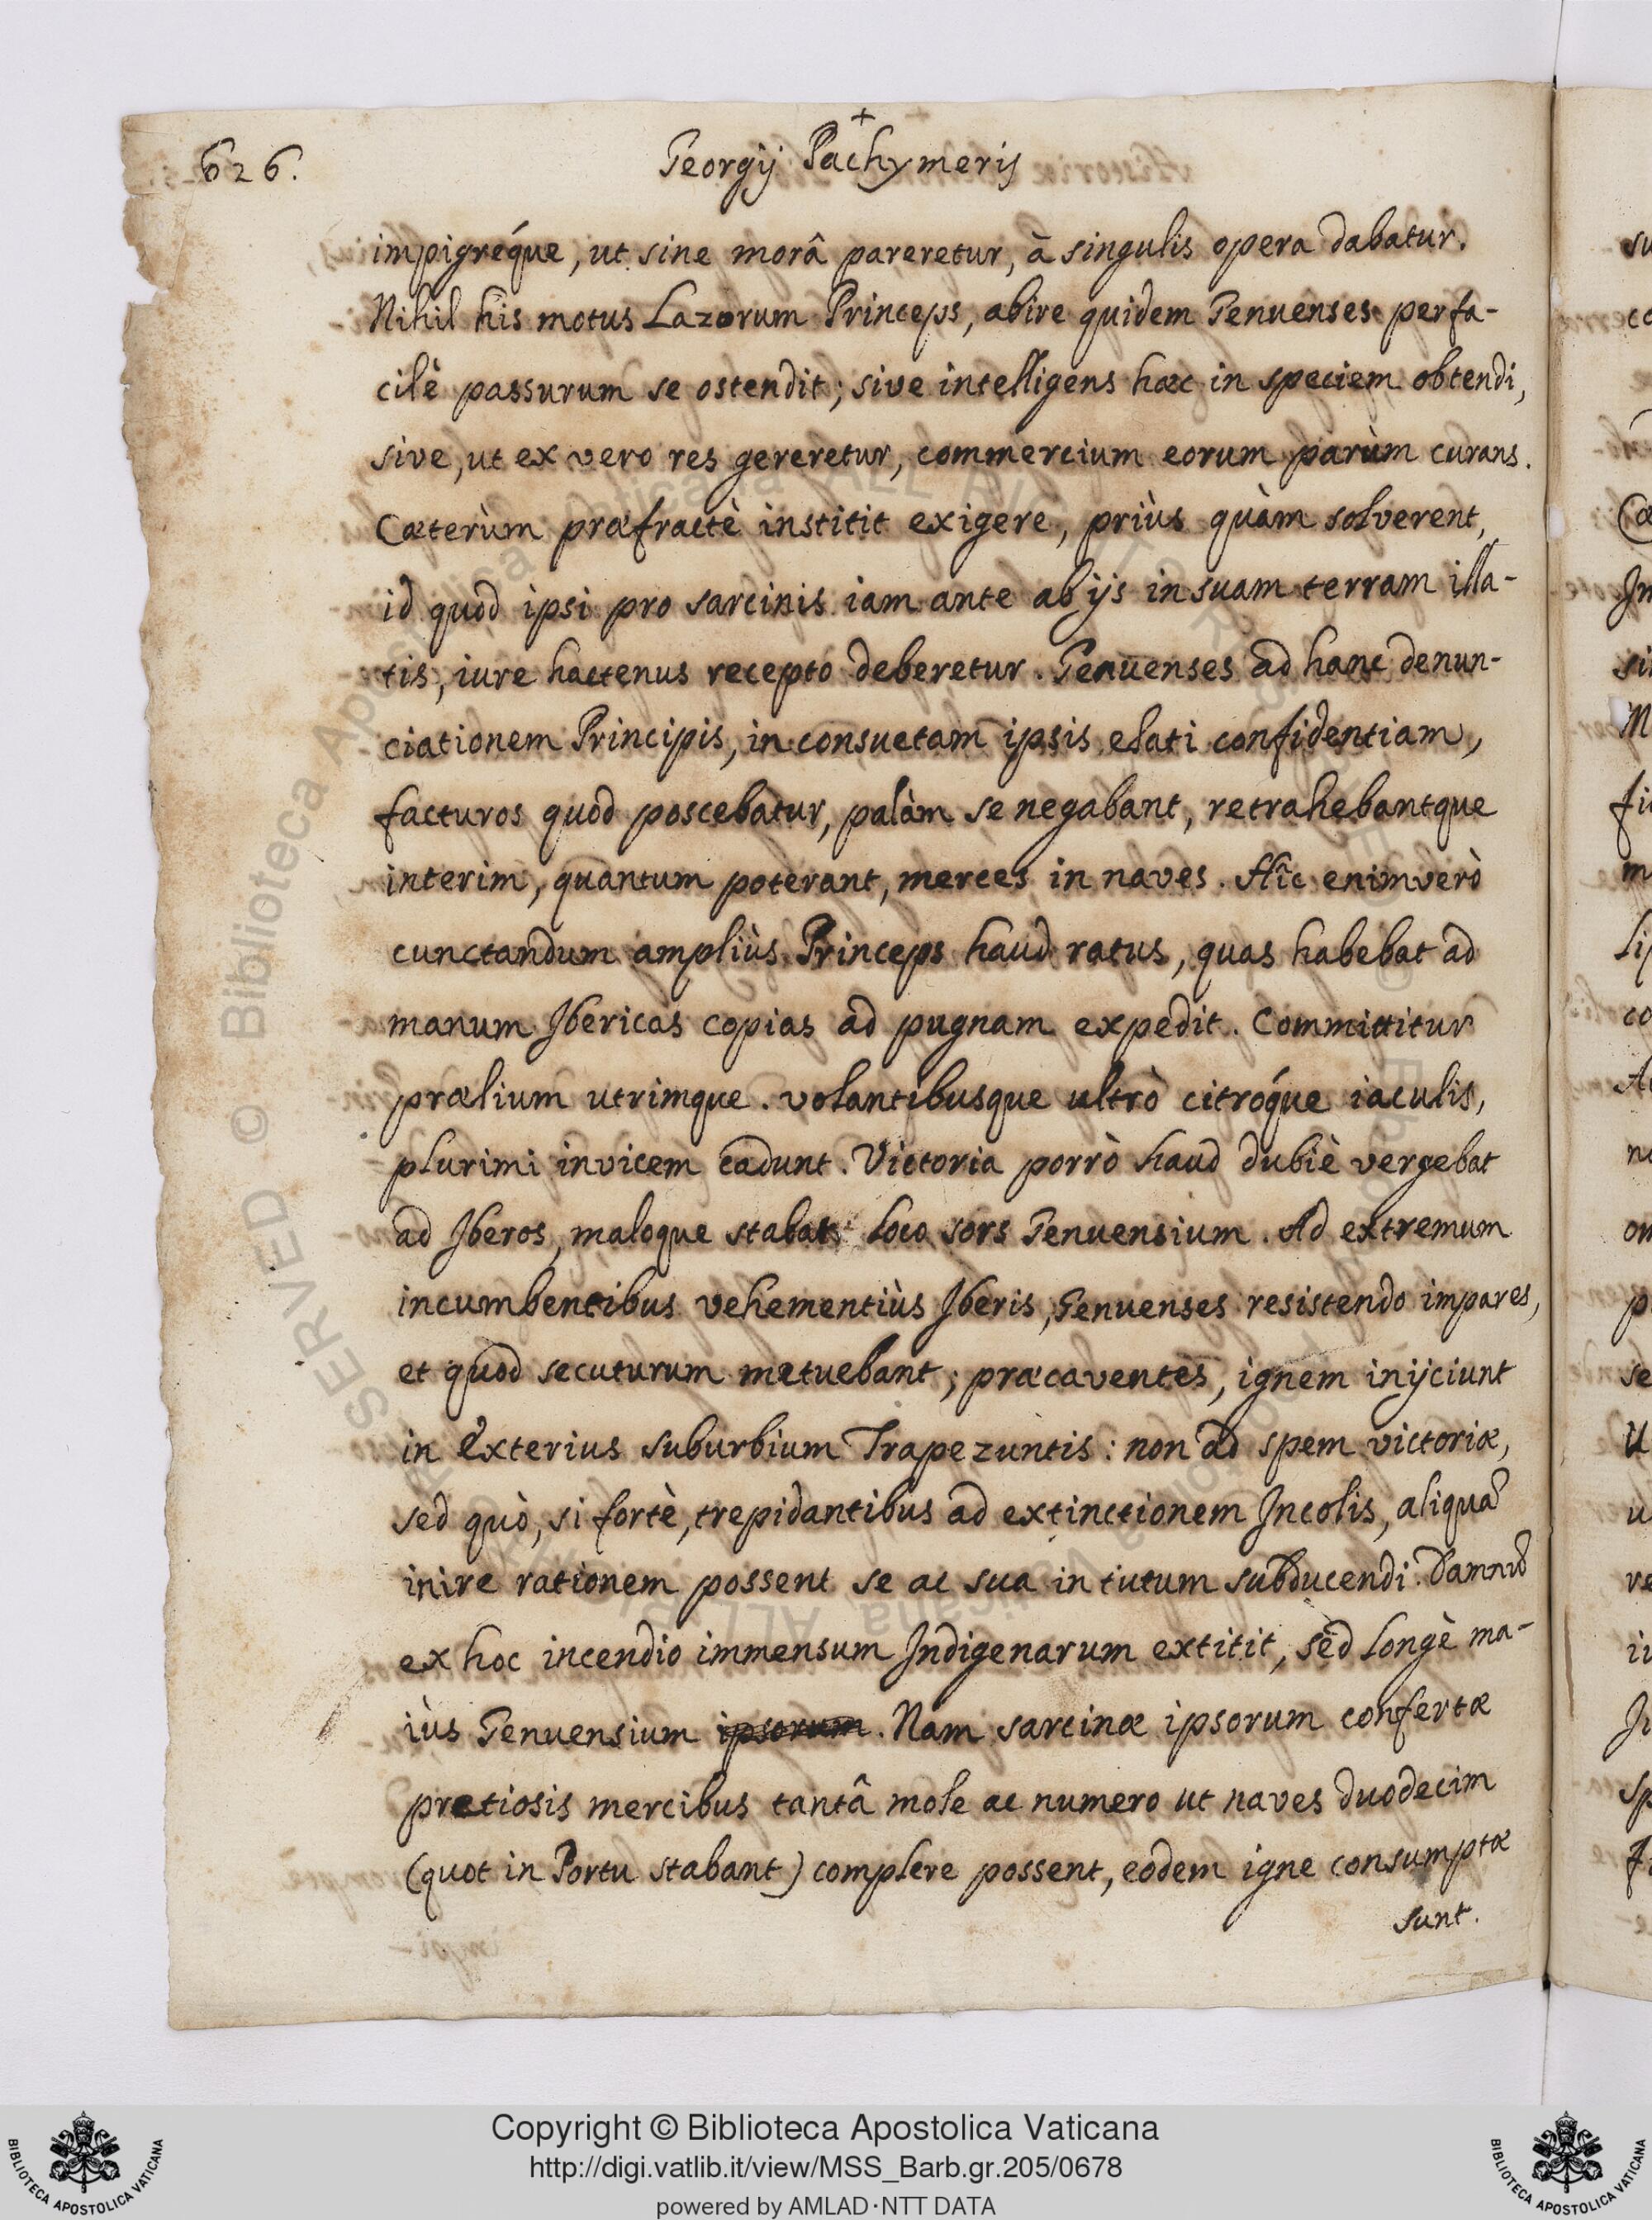 626.
Georgij Pachymeris
impigréque, ut sine morâ pareretur, à singulis opera dabatur.
Nihil his motus Lazorum Princeps, abire quidem Genuenses perfa-
cilè passurum se ostendit; sive intelligens hæc in speciem obtendi,
sive, ut ex vero res gereretur, commercium eorum parùm curans.
Cæterùm præfractè institit exigere, priùs quàm solverent,
id quod ipsi pro sarcinis iam ante ab ijs in suam terram illa-
tis, iure hactenus recepto deberetur. Genuenses ad hanc denun-
ciationem Principis, in consuetam ipsis elati confidentiam,
facturos quod poscebatur, palàm se negabant, retrahebantque
interim, quantum poterant, merces in naves. Hîc enimverò
cunctandum ampliùs Princeps haud ratus, quas habebat ad
manum Ibericas copias ad pugnam expedit. Committitur
prælium utrimque. volantibusque ultrò citróque iaculis,
plurimi invicem cadunt. Victoria porrò haud dubiè vergebat
ad Iberos, maloque stabat loco sors Genuensium. Ad extremum
incumbentibus vehementiùs Iberis, Genuenses resistendo impares,
et quod secuturum metuebant, præcaventes, ignem inijciunt
in exterius suburbium Trapezuntis: non ad spem victoriæ,
sed quò, si fortè, trepidantibus ad extinctionem Incolis, aliquã
inire rationem possent se ac sua in tutum subducendi. Damnũ
ex hoc incendio immensum Indigenarum extitit, sed longè ma-
iùs Genuensium ipsorum. Nam sarcinæ ipsorum confertæ
pretiosis mercibus tantâ mole ac numero ut naves duodecim
(quot in Portu stabant) complere possent, eodem igne consumptæ
sunt.
Copyright © Biblioteca Apostolica Vaticana
http://digi.vatlib.it/view/MSS_Barb.gr.205/0678
powered by AMLAD·NTT DATA
BIBLIOTECA APOSTOLICA VATICANA
BIBLIOTECA APOSTOLICA VATICANA